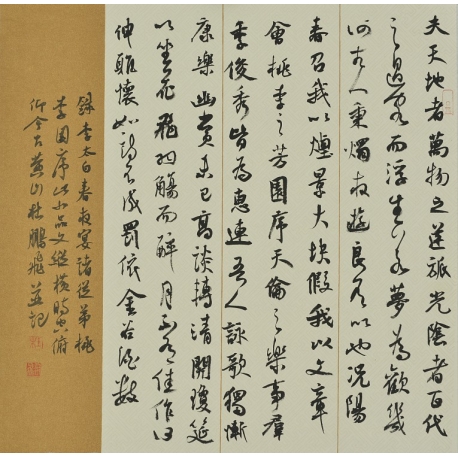 夫天地者萬物之逆旅光陰者百代
之過客而浮生若夢為歡幾
何古人秉燭夜遊良有以也況陽
春召我以煙景大塊假我以文章
會桃李之芳園序天倫之樂事羣
季俊秀皆為惠連吾人詠歌獨慚
康樂幽賞未已高談轉清開瓊筵
以坐花飛羽觴而醉月不有佳作何
伸雅懷如詩不成罰依金谷酒數
錄李太白春夜宴諸從弟桃
李園序此小品文縱橫時空俯
仰今古山杜鵬飛並記